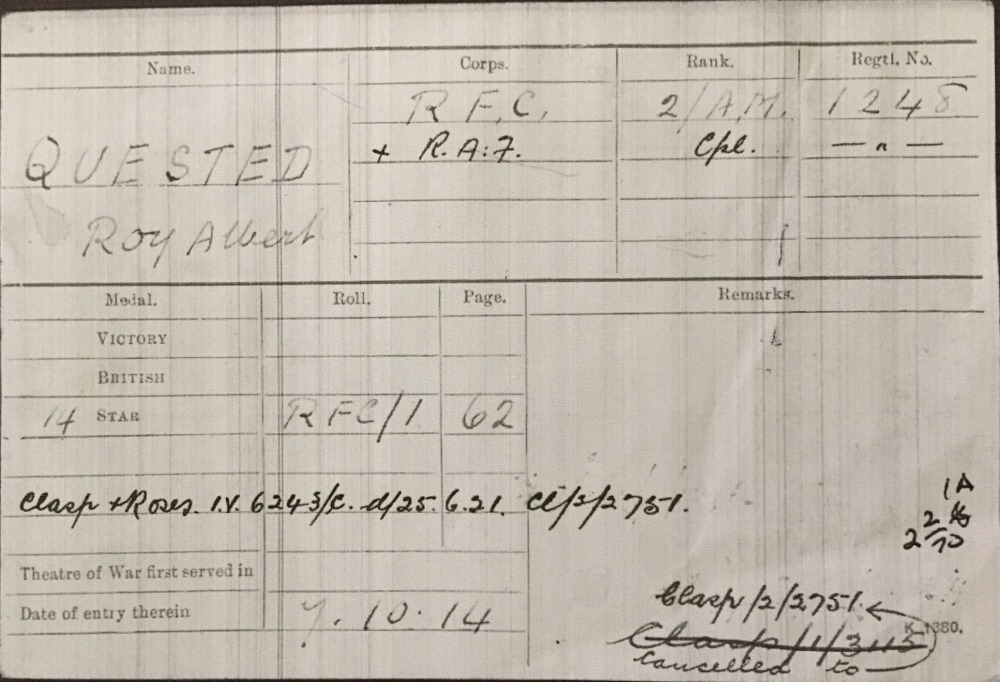 Name. Corps. Rank. Regtl. No.
R F.C. 2/A.M. 1248
QUESTED + R.A.F. Cpl. — " —
Roy Albert
Medal. Roll. Page. Remarks.
VICTORY
BRITISH
14 STAR RFC/1 62
Clasp + Roses. I.V. 6243/C. d/25.6.21. Cl/2/2751.
1A
2
2/70
Theatre of War first served in
Clasp/2/2751.
Date of entry therein 7.10.14
K 1380.
Clasp/1/3115
cancelled to